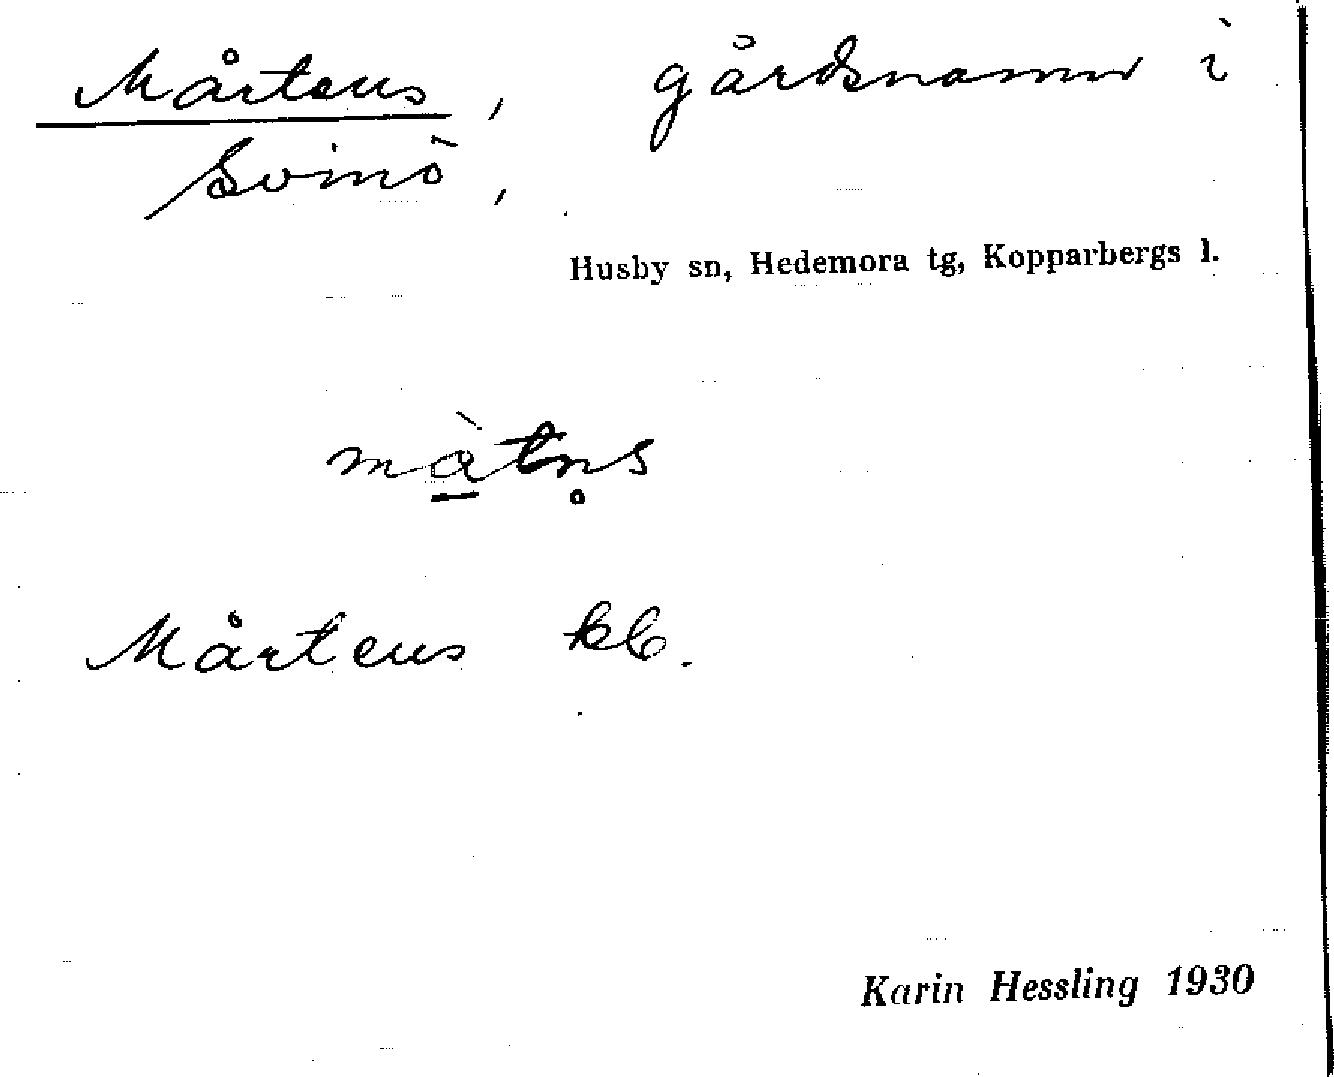 Mårtens, gårdsnamn i
Svinö,
Husby sn, Hedemora tg, Kopparbergs l.
mà̱tn̥s
Mårtens kb.
Karin Hessling 1930